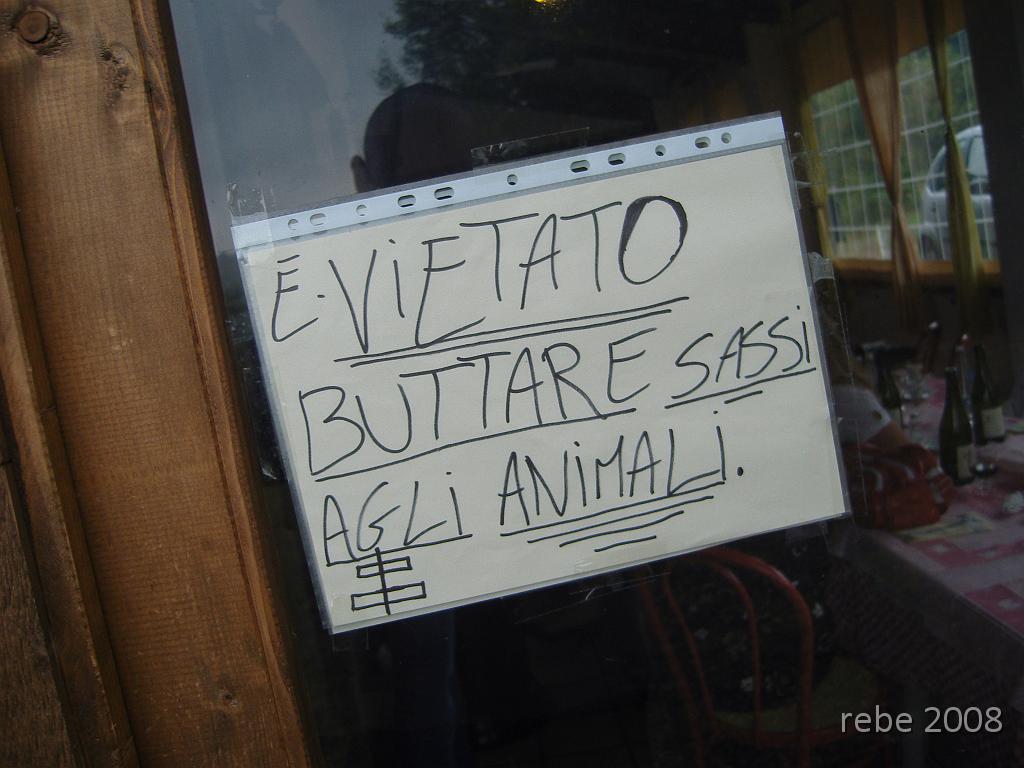 E. VIETATO
BUTTARE SASSI
AGLI ANIMALI.
rebe 2008